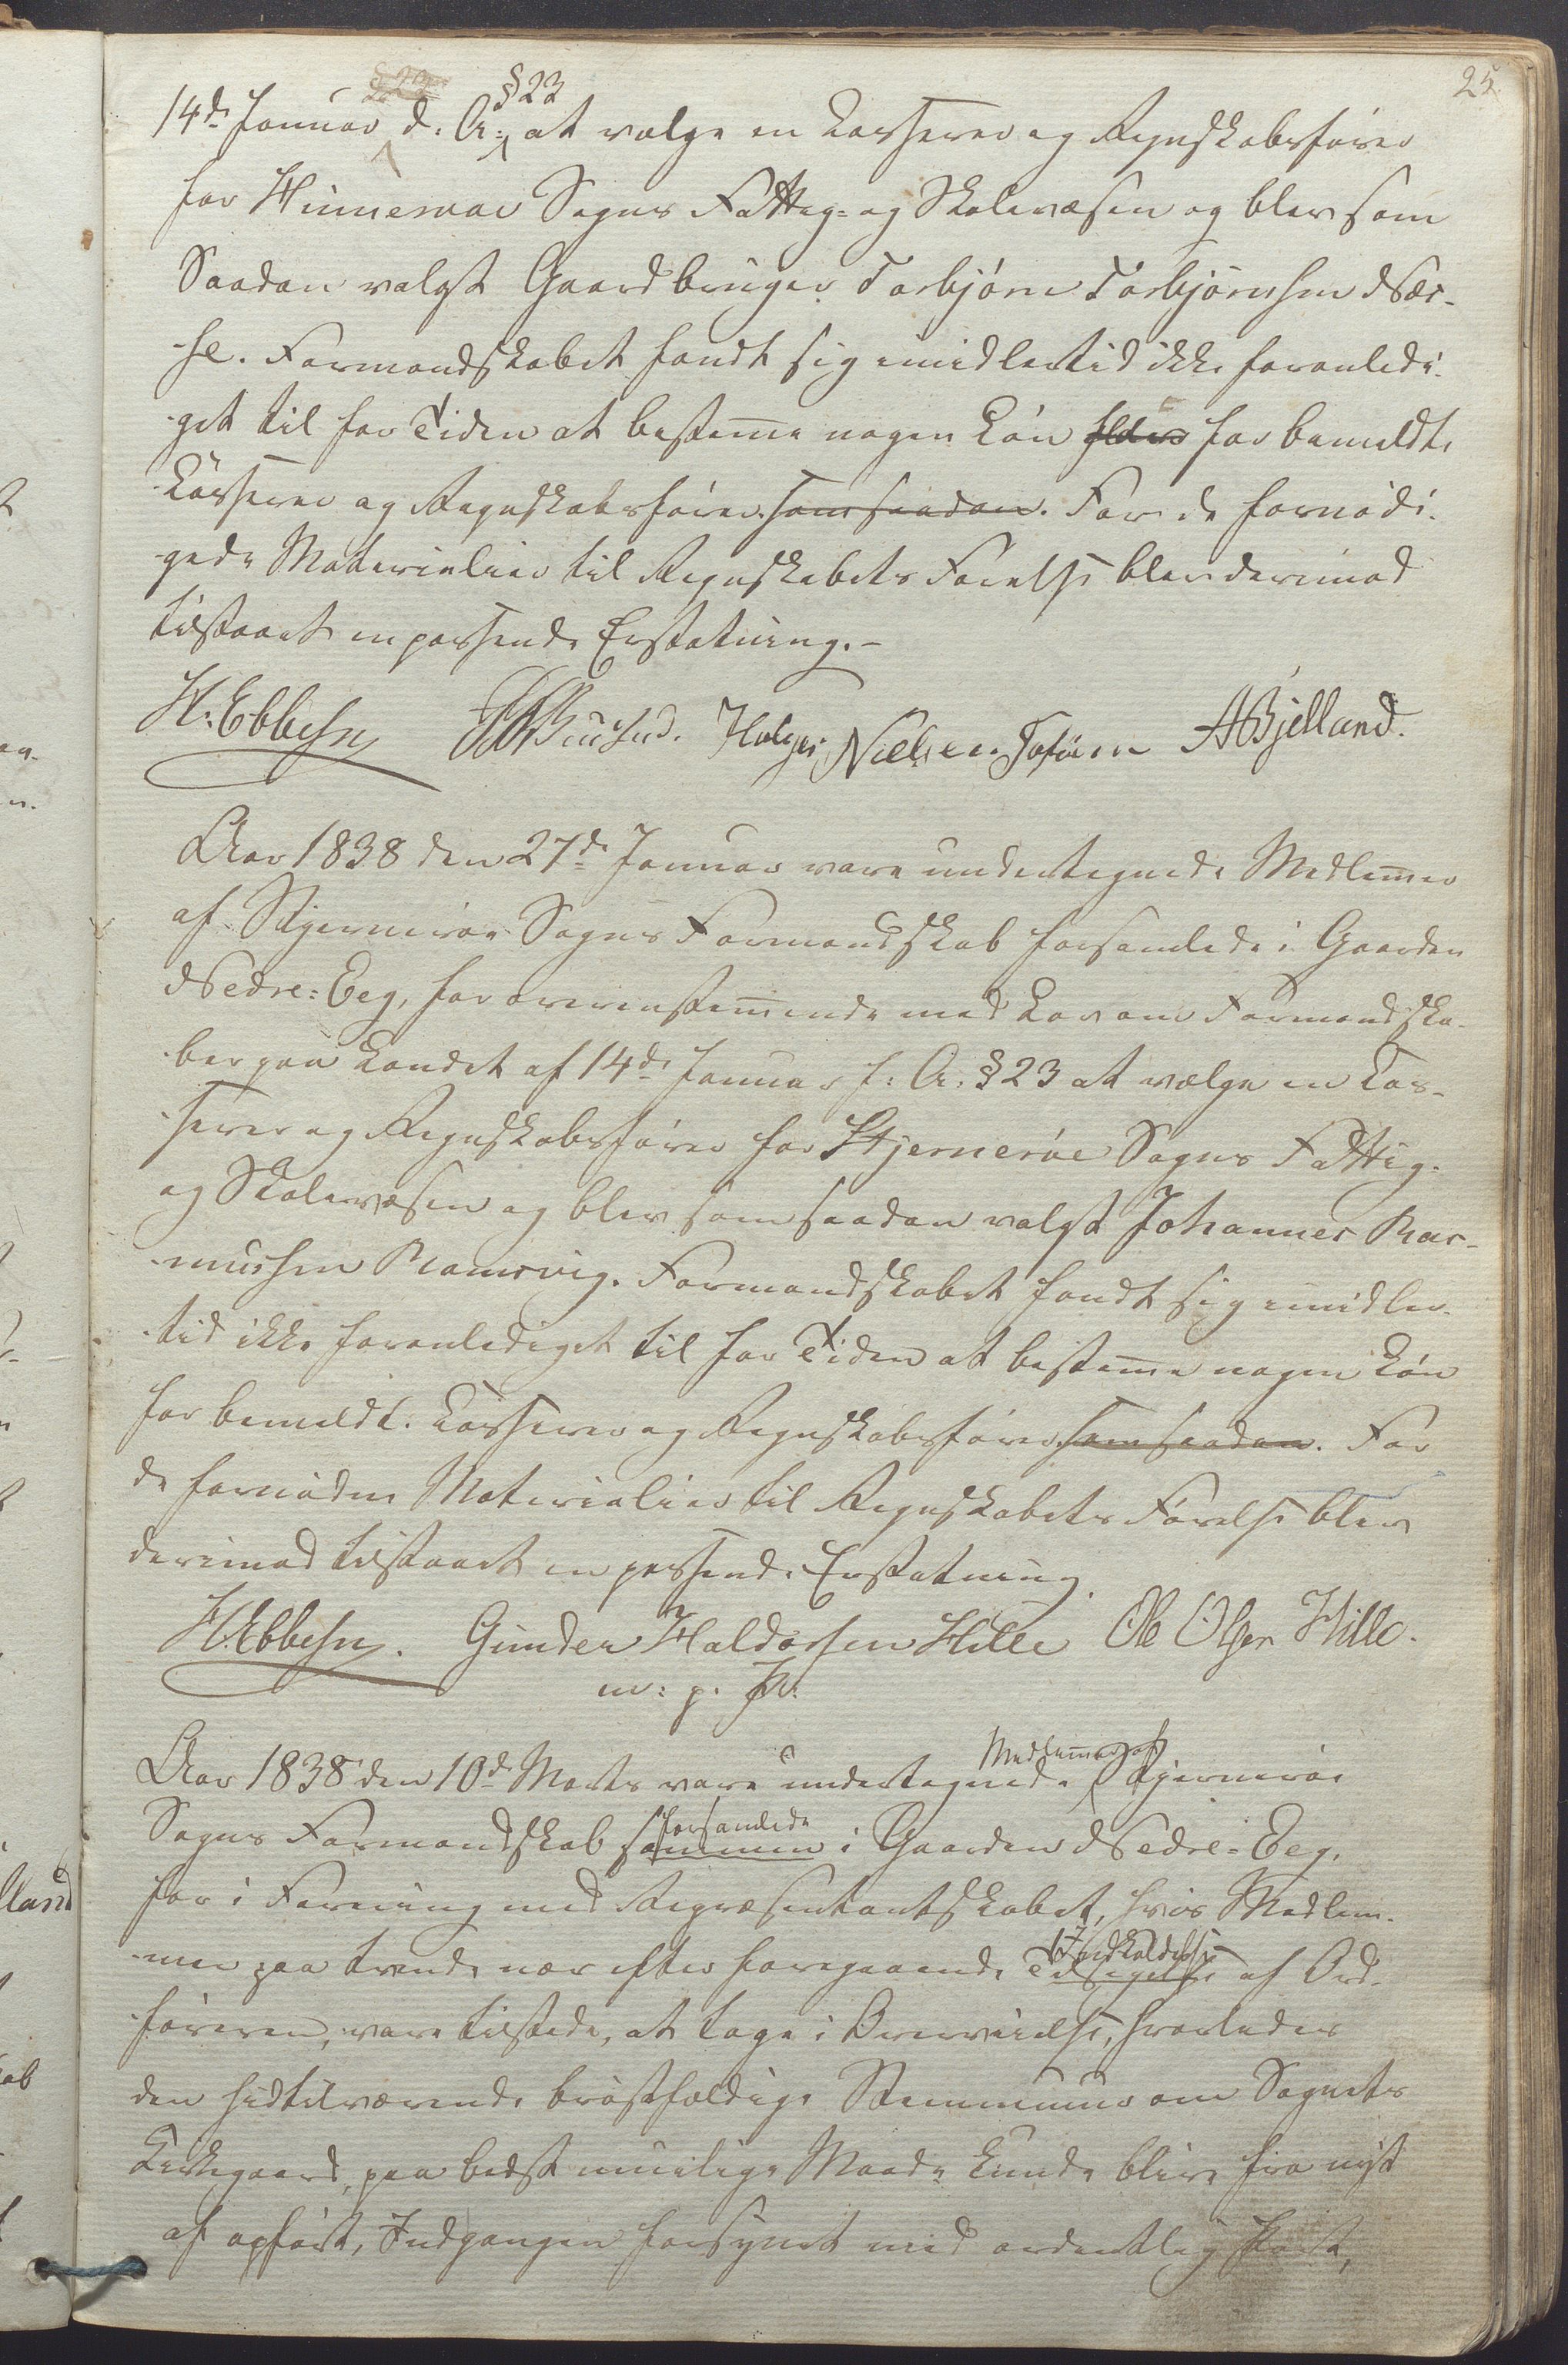 25.
§ 23
14de Januar d: A: at vælge en Kasserer og Regnskabsfører
for Hinneraae Sogns Fattig- og Skolevæsen og blev som
Saadan valgt Gaardbruger Torbjørn Torbjørnsen Næs-
he. Formandskabet fandt sig imidlertid ikke foranledi-
get til for Tiden at bestemme nogen Løn for bemeldte
Kasserer og Regnskabsfører som saadan. For de fornødi-
gede Materialier til Regnskabets Førelse blev derimod
tilstaaet en passende Erstatning.-
H. Ebbesen Holger Nielsen ABjelland.
Aar 1838 den 27de Januar vare undertegnede Medlemmer
af Stjernerøe Sogns Formandskab forsamlede i Gaarden
Nedre-Eeg, for overensstemmende med Lov om Formandska-
ber paa Landet af 14de Januar f: A: § 23 at vælge en Kas-
serer og Regnskabsfører for Stjernerøe Sogns Fattig-
og Skolevæsen og blev som saadan valgt Johannes Ras-
mussen Ramsvig. Formandskabet fandt sig imidler-
tid ikke foranlediget til for Tiden at bestemme nogen Løn
for bemeldte Kasserer og Regnskabsfører som saadan. For
de fornødne Materialier til Regnskabets Førelse blev
derimod tilstaaet en passende Erstatning.
H. Ebbesen. Gunder Haldorsen Hille Ole Olsen Hille.
m: p. P:
Medlemmer af
Aar 1838 den 10de Marts vare undertegnede Stjernerøe
forsamlede
Sogns Formandskab sammen i Gaarden Nedre-Eeg,
for i Forening med Repræsentantskabet, hvis Medlem-
Indkaldelse
mer paa trende nær efter foregaaende Tilsigelse af Ord-
føreren, vare tilstede, at tage i Overveielse, hvorledes
den hidtilværende brøstfældige Steenmuur om Sognets
Kirkegaard, paa bedst muelige Maade kunde blive fra nyt
af opført, Indgangen forsynet med ordentlig Port,